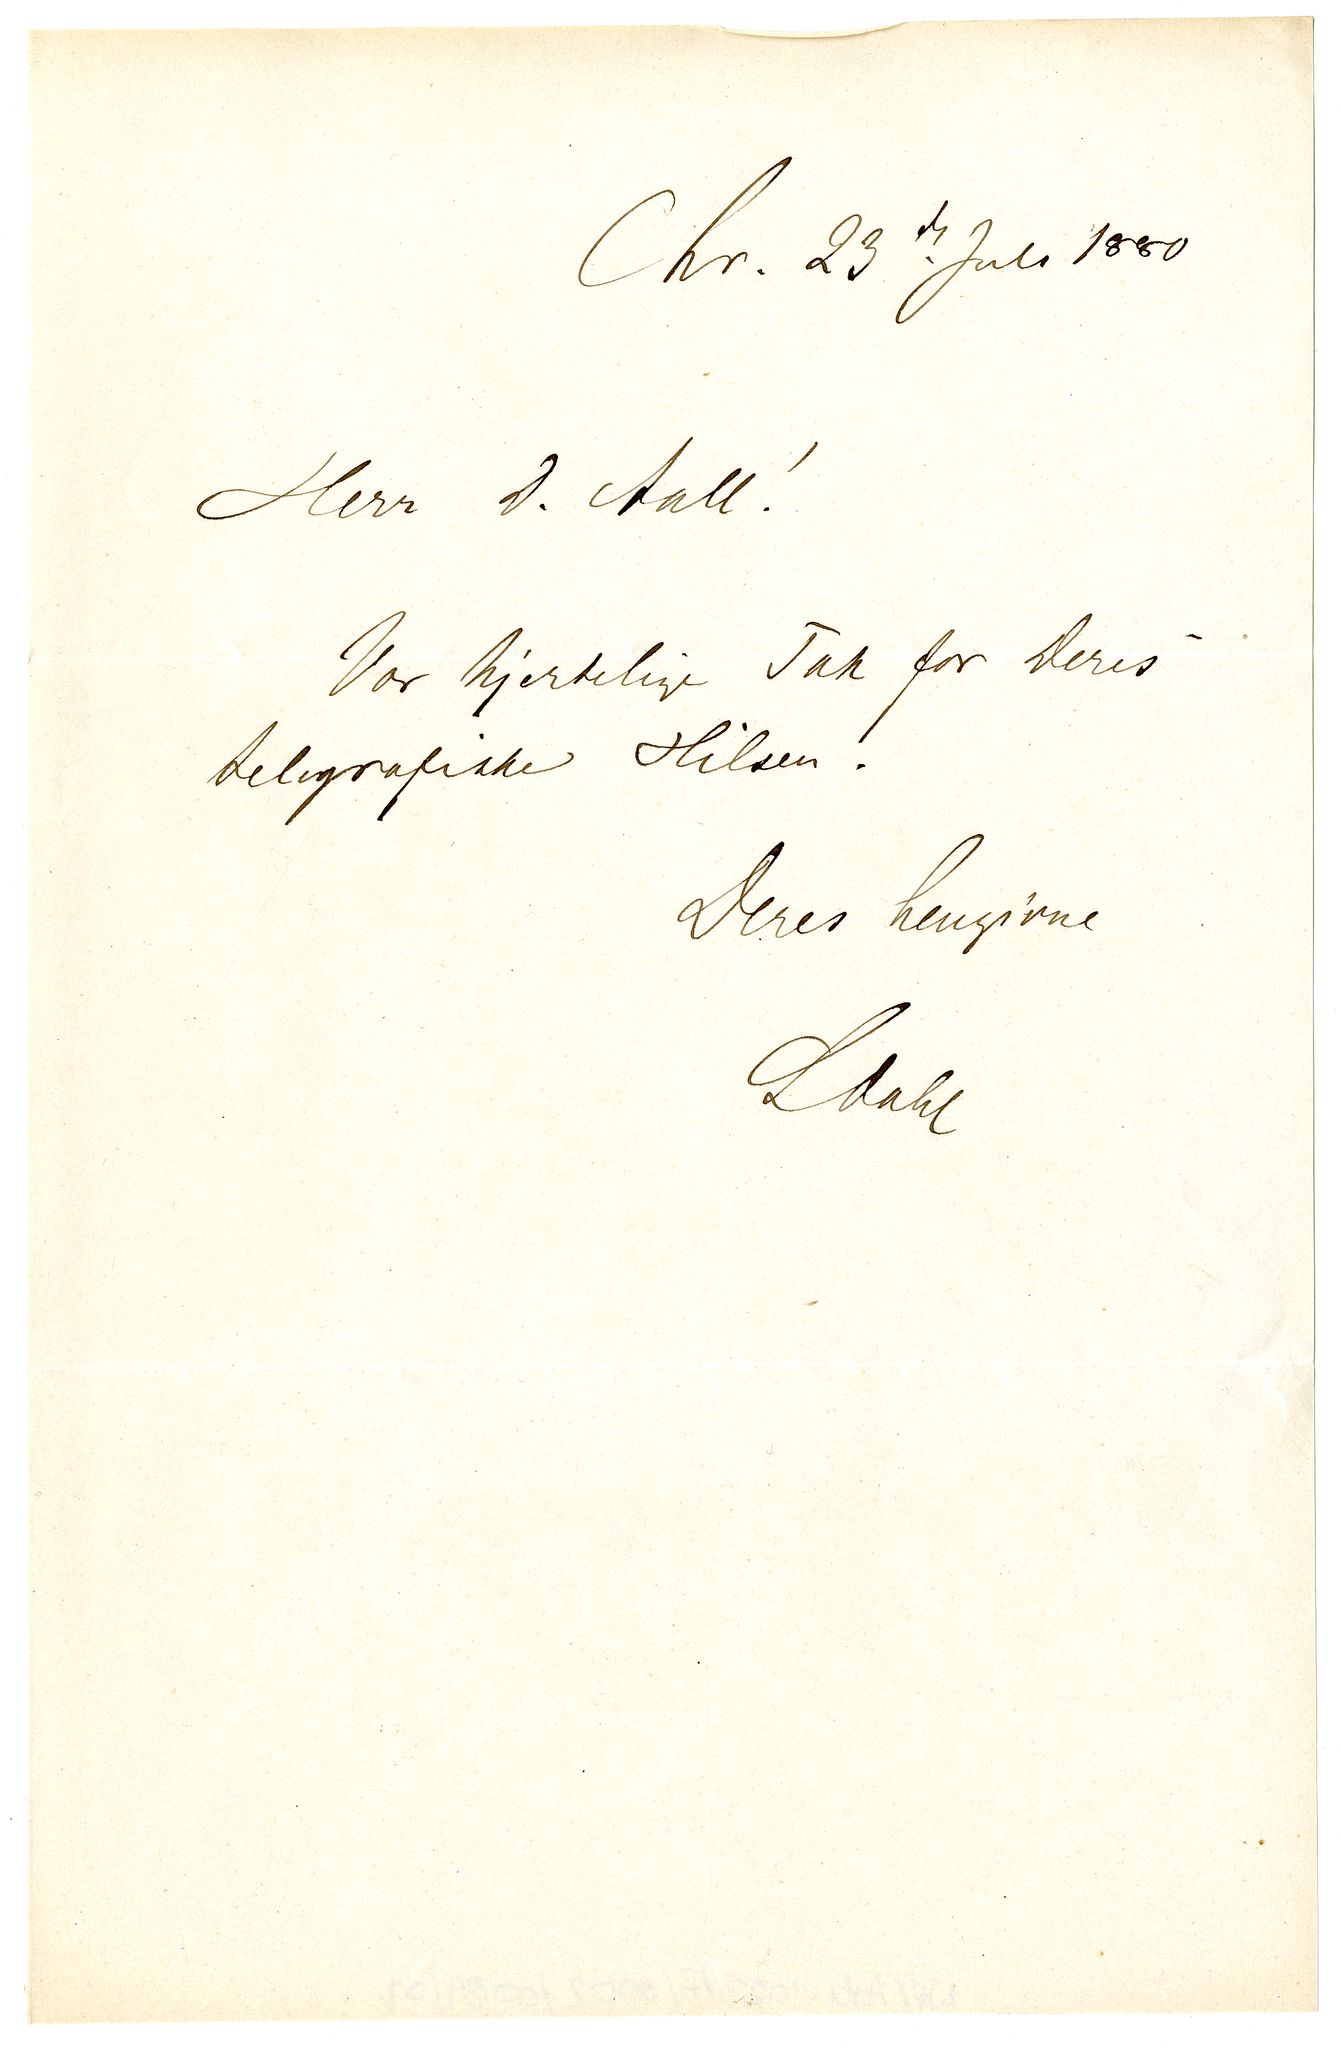 Chr. 23de Juli 1880
Herr D. Aall!
Vor hjertelige Tak for Deres
telegrafiske Hilsen.
Deres hengivne
L Dahl